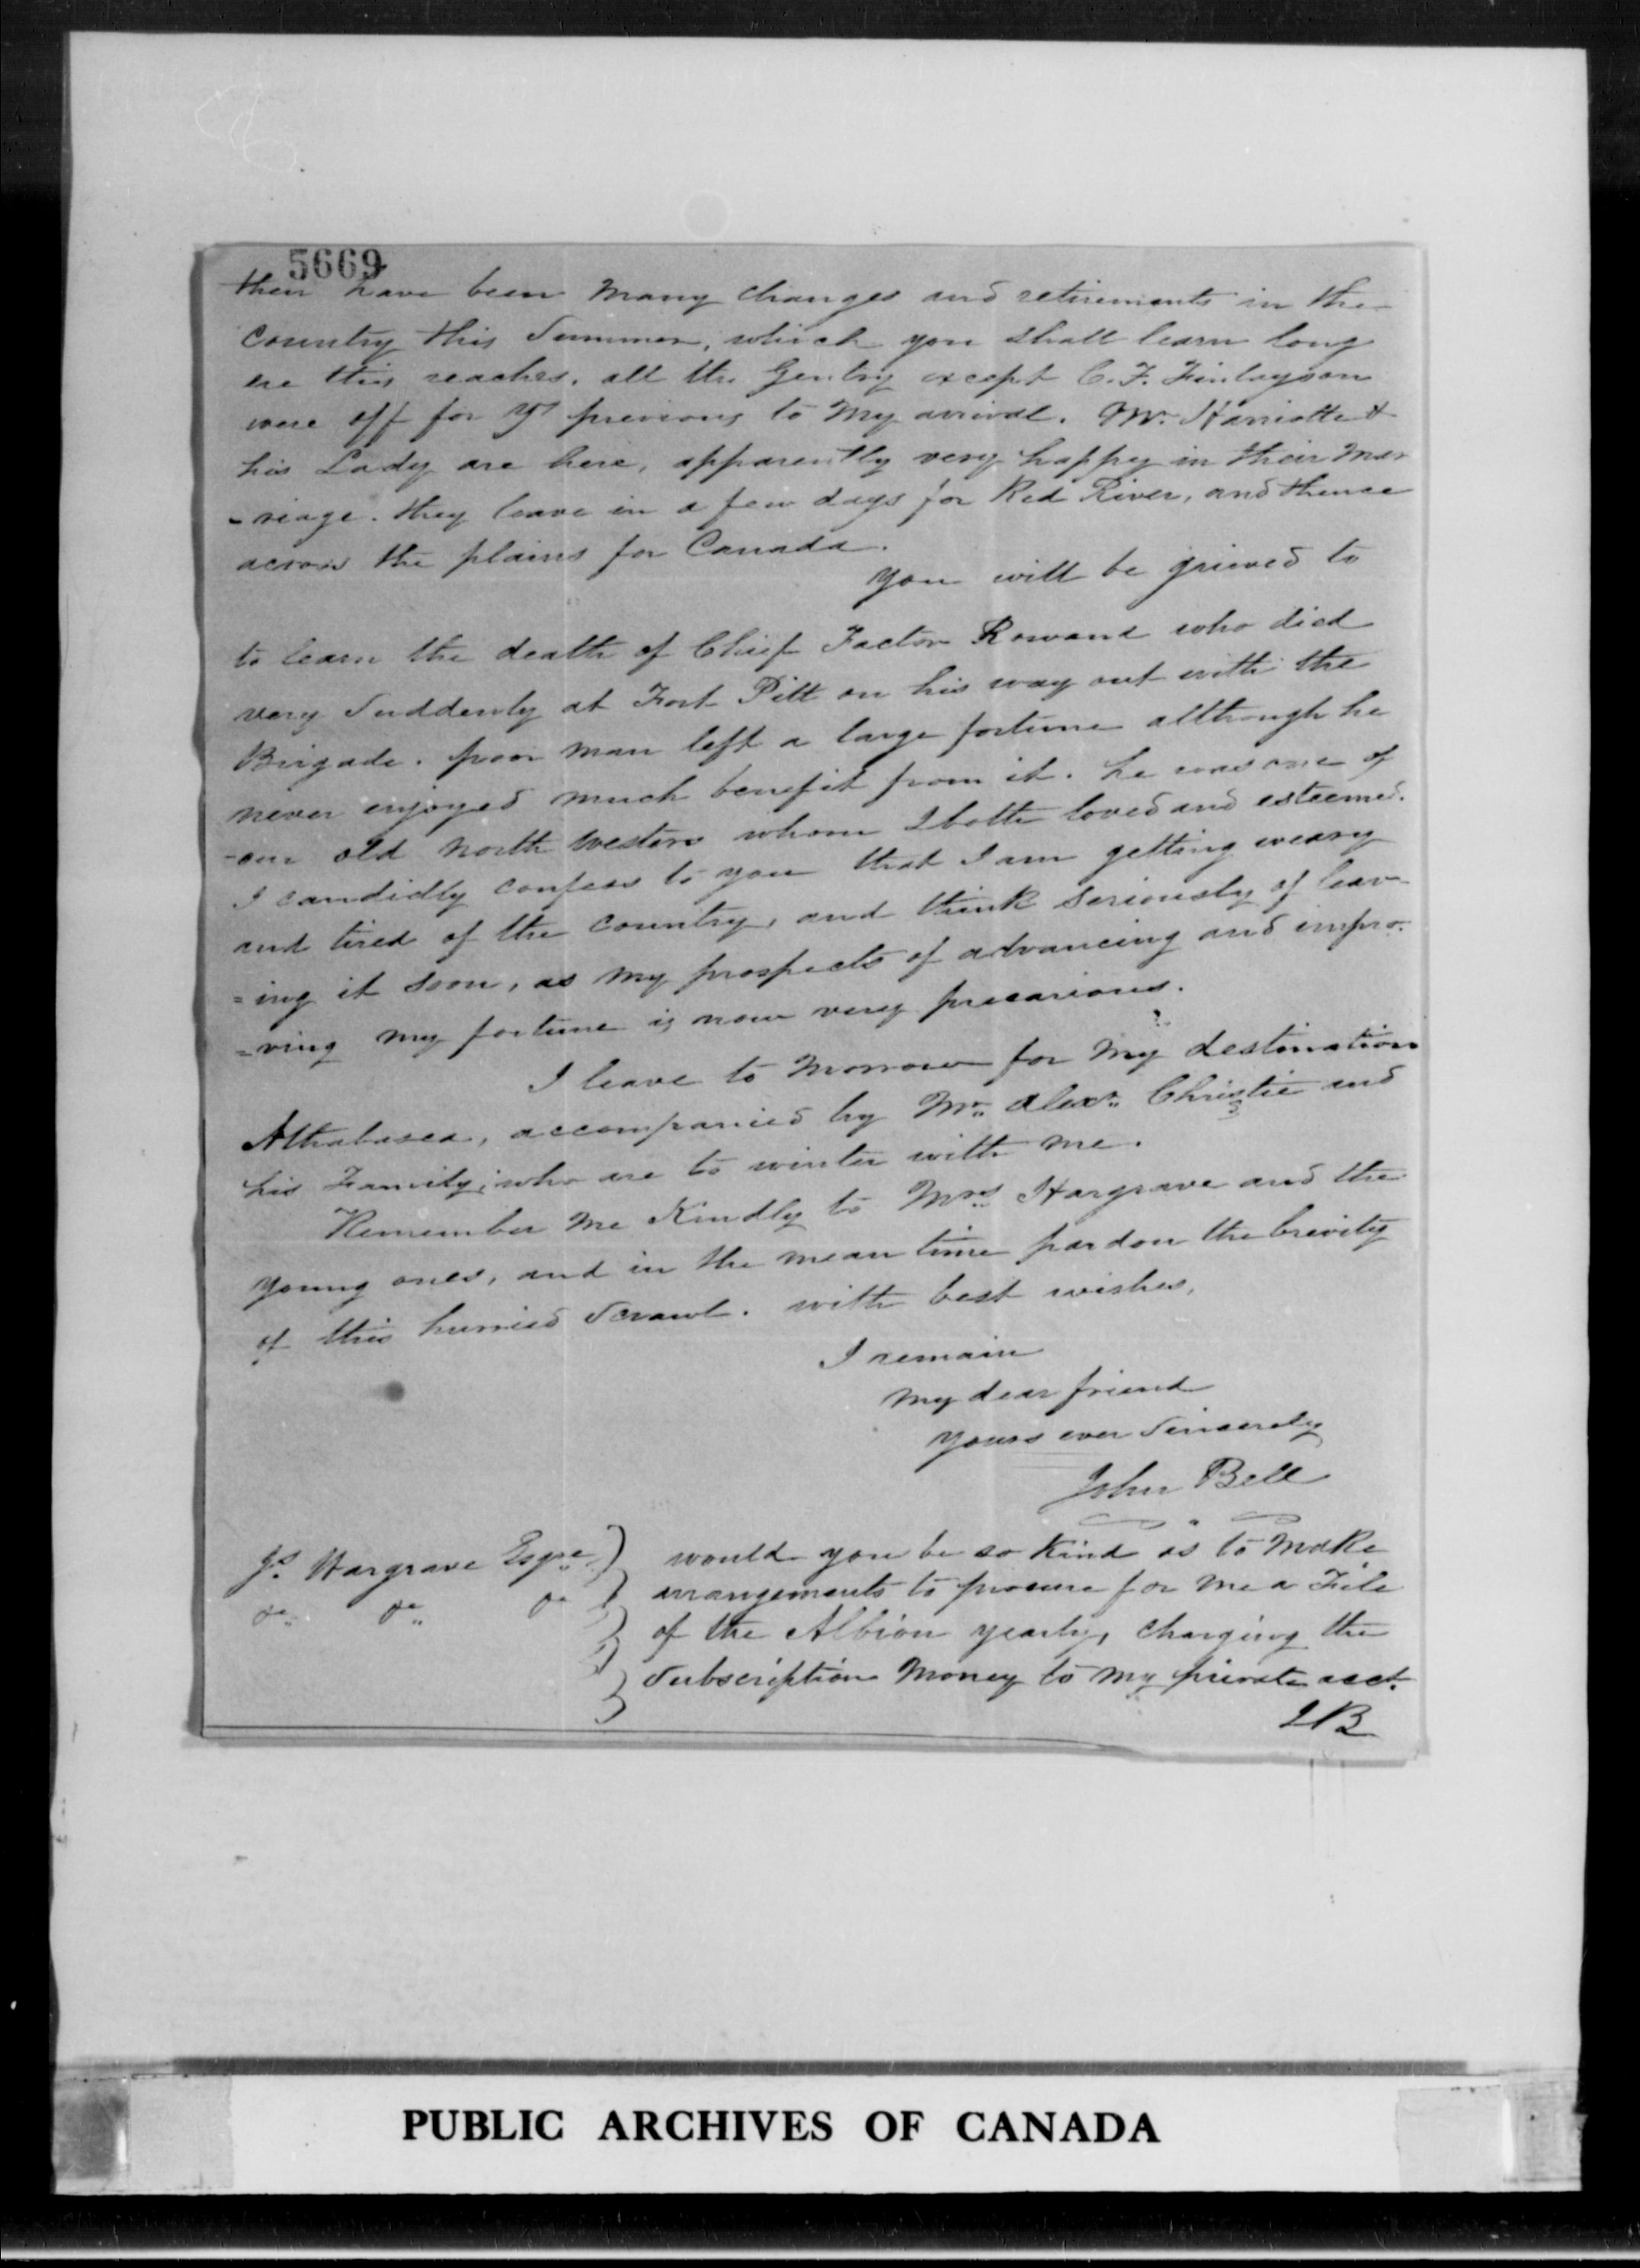 5669
there have been many changes and retirements in the
Country this Summer, which you shall learn long
ere this reaches. all the Gentry except C. F. Finlayson
were off for YF previous to my arrival. Mr. Harriotte &
his Lady are here, apparently very happy in their mar
-riage. they leave in a few days for Red River, and thence
across the plains for Canada.
You will be grieved to
to learn the death of Chief Factor Rowand who died
very Suddenly at Fort Pitt on his way out with the
Brigade. poor man left a large fortune although he
never enjoyed much benefit from it. he was one of
our old North Westers whom I both loved and esteemed.
I candidly confess to you that I am getting weary
and tired of the Country, and think Seriously of leav
=ing it soon, as my prospects of advancing and impro.
=ving my fortune is now very precarious.
I leave to morrow for my destination
Athabasca, accompanied by Mr. Alexr. Christie and
his Family, who are to winter with me.
Remember me Kindly to Mrs. Hargrave and the
young ones, and in the mean time pardon the brevity
of this hurried Scrawl. with best wishes,
I remain
my dear friend
Yours ever Sincerely
John Bell
Js. Hargrave Esqre.
do. do. do
would you be so Kind as to make
arrangements to procure for me a File
of the Albion yearly, charging the
Subscription Money to my private acct.
JB
PUBLIC ARCHIVES OF CANADA